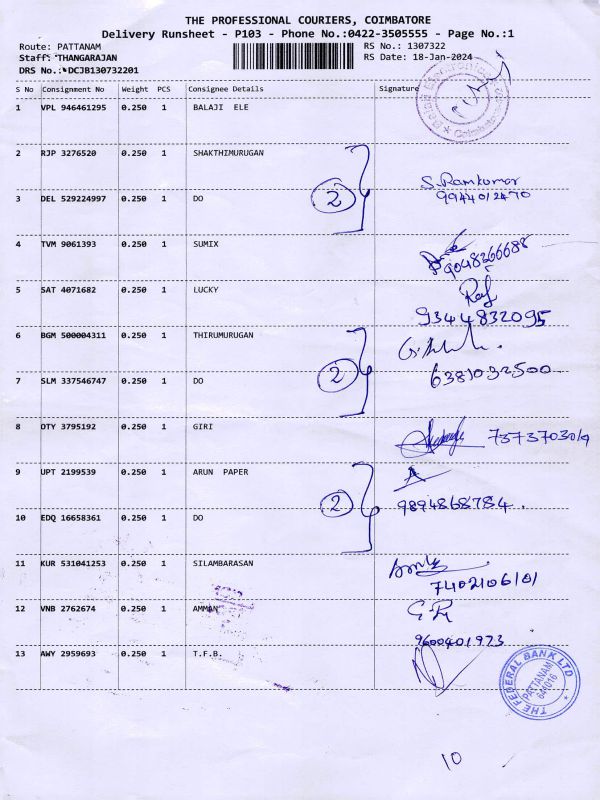 THE PROFESSIONAL COURIERS, COIMBATORE
Delivery Runsheet - P103 - Phone No.:0422-3505555 - Page No.:1
Route: PATTANAM RS No.: 1307322
Staff: THANGARAJAN RS Date: 18-Jan-2024
DRS No.: DCJB130732201
S No Consignment No Weight PCS Consignee Details Signature
1 VPL 946461295 0.250 1 BALAJI ELE
2 RJP 3276520 0.250 1 SHAKTHIMURUGAN
S. Ramkumar
3 DEL 529224997 0.250 1 DO 2 9944012470
4 TVM 9061393 0.250 1 SUMIX
9048266688
5 SAT 4071682 0.250 1 LUCKY Raj
9344832095
6 BGM 500004311 0.250 1 THIRUMURUGAN
7 SLM 337546747 0.250 1 DO 2 6381032500
8 OTY 3795192 0.250 1 GIRI
7373703019
9 UPT 2199539 0.250 1 ARUN PAPER
2 9894868784.
10 EDQ 16658361 0.250 1 DO
11 KUR 531041253 0.250 1 SILAMBARASAN
7402106101
12 VNB 2762674 0.250 1 AMMAN
9600401923
13 AWY 2959693 0.250 1 T.F.B.
THE FEDERAL BANK LTD
PATTANAM
641016
10